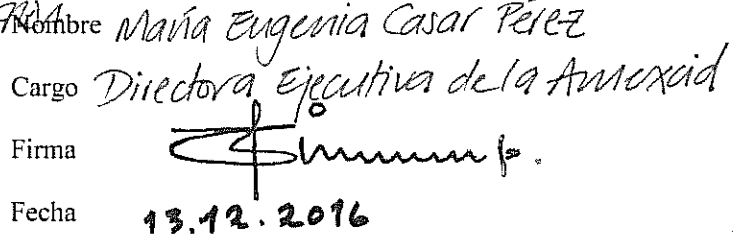 Nombre María Eugenia Casar Pérez
Cargo Directora Ejecutiva de la Amexcid
Firma
Fecha 13.12.2016